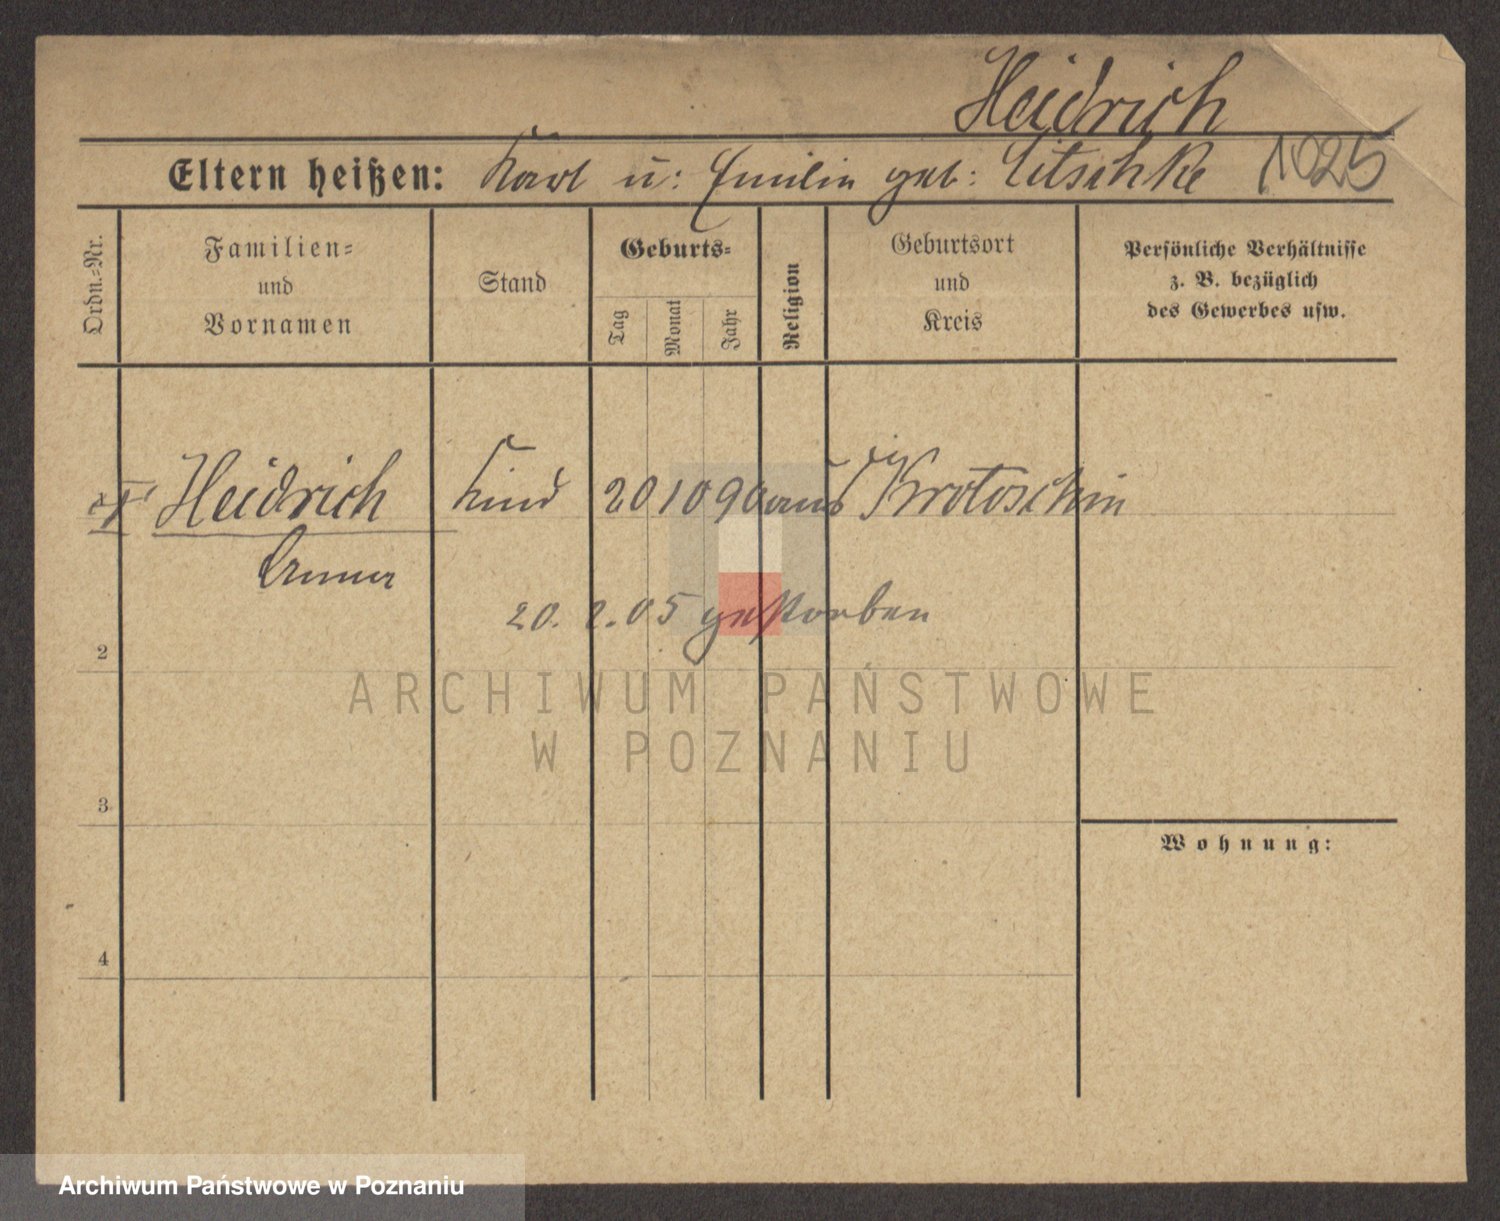 Heidrich
Eltern heißen: Karl u: Emilie geb: Litschke 1025
Ordn.-Nr.
Familien-
und
Vornamen
Stand
Geburts-
Tag
Monat
Jahr
Religion
Geburtsort
und
Kreis
Persönliche Verhältnisse
z. B. bezüglich
des Gewerbes usw.
Heidrich Kind 20 10 90 Krotoschin
Anna
20. 2. 05 gestorben
2
ARCHIWUM PAŃSTWOWE
W POZNANIU
3
Wohnung:
4
Archiwum Państwowe w Poznaniu